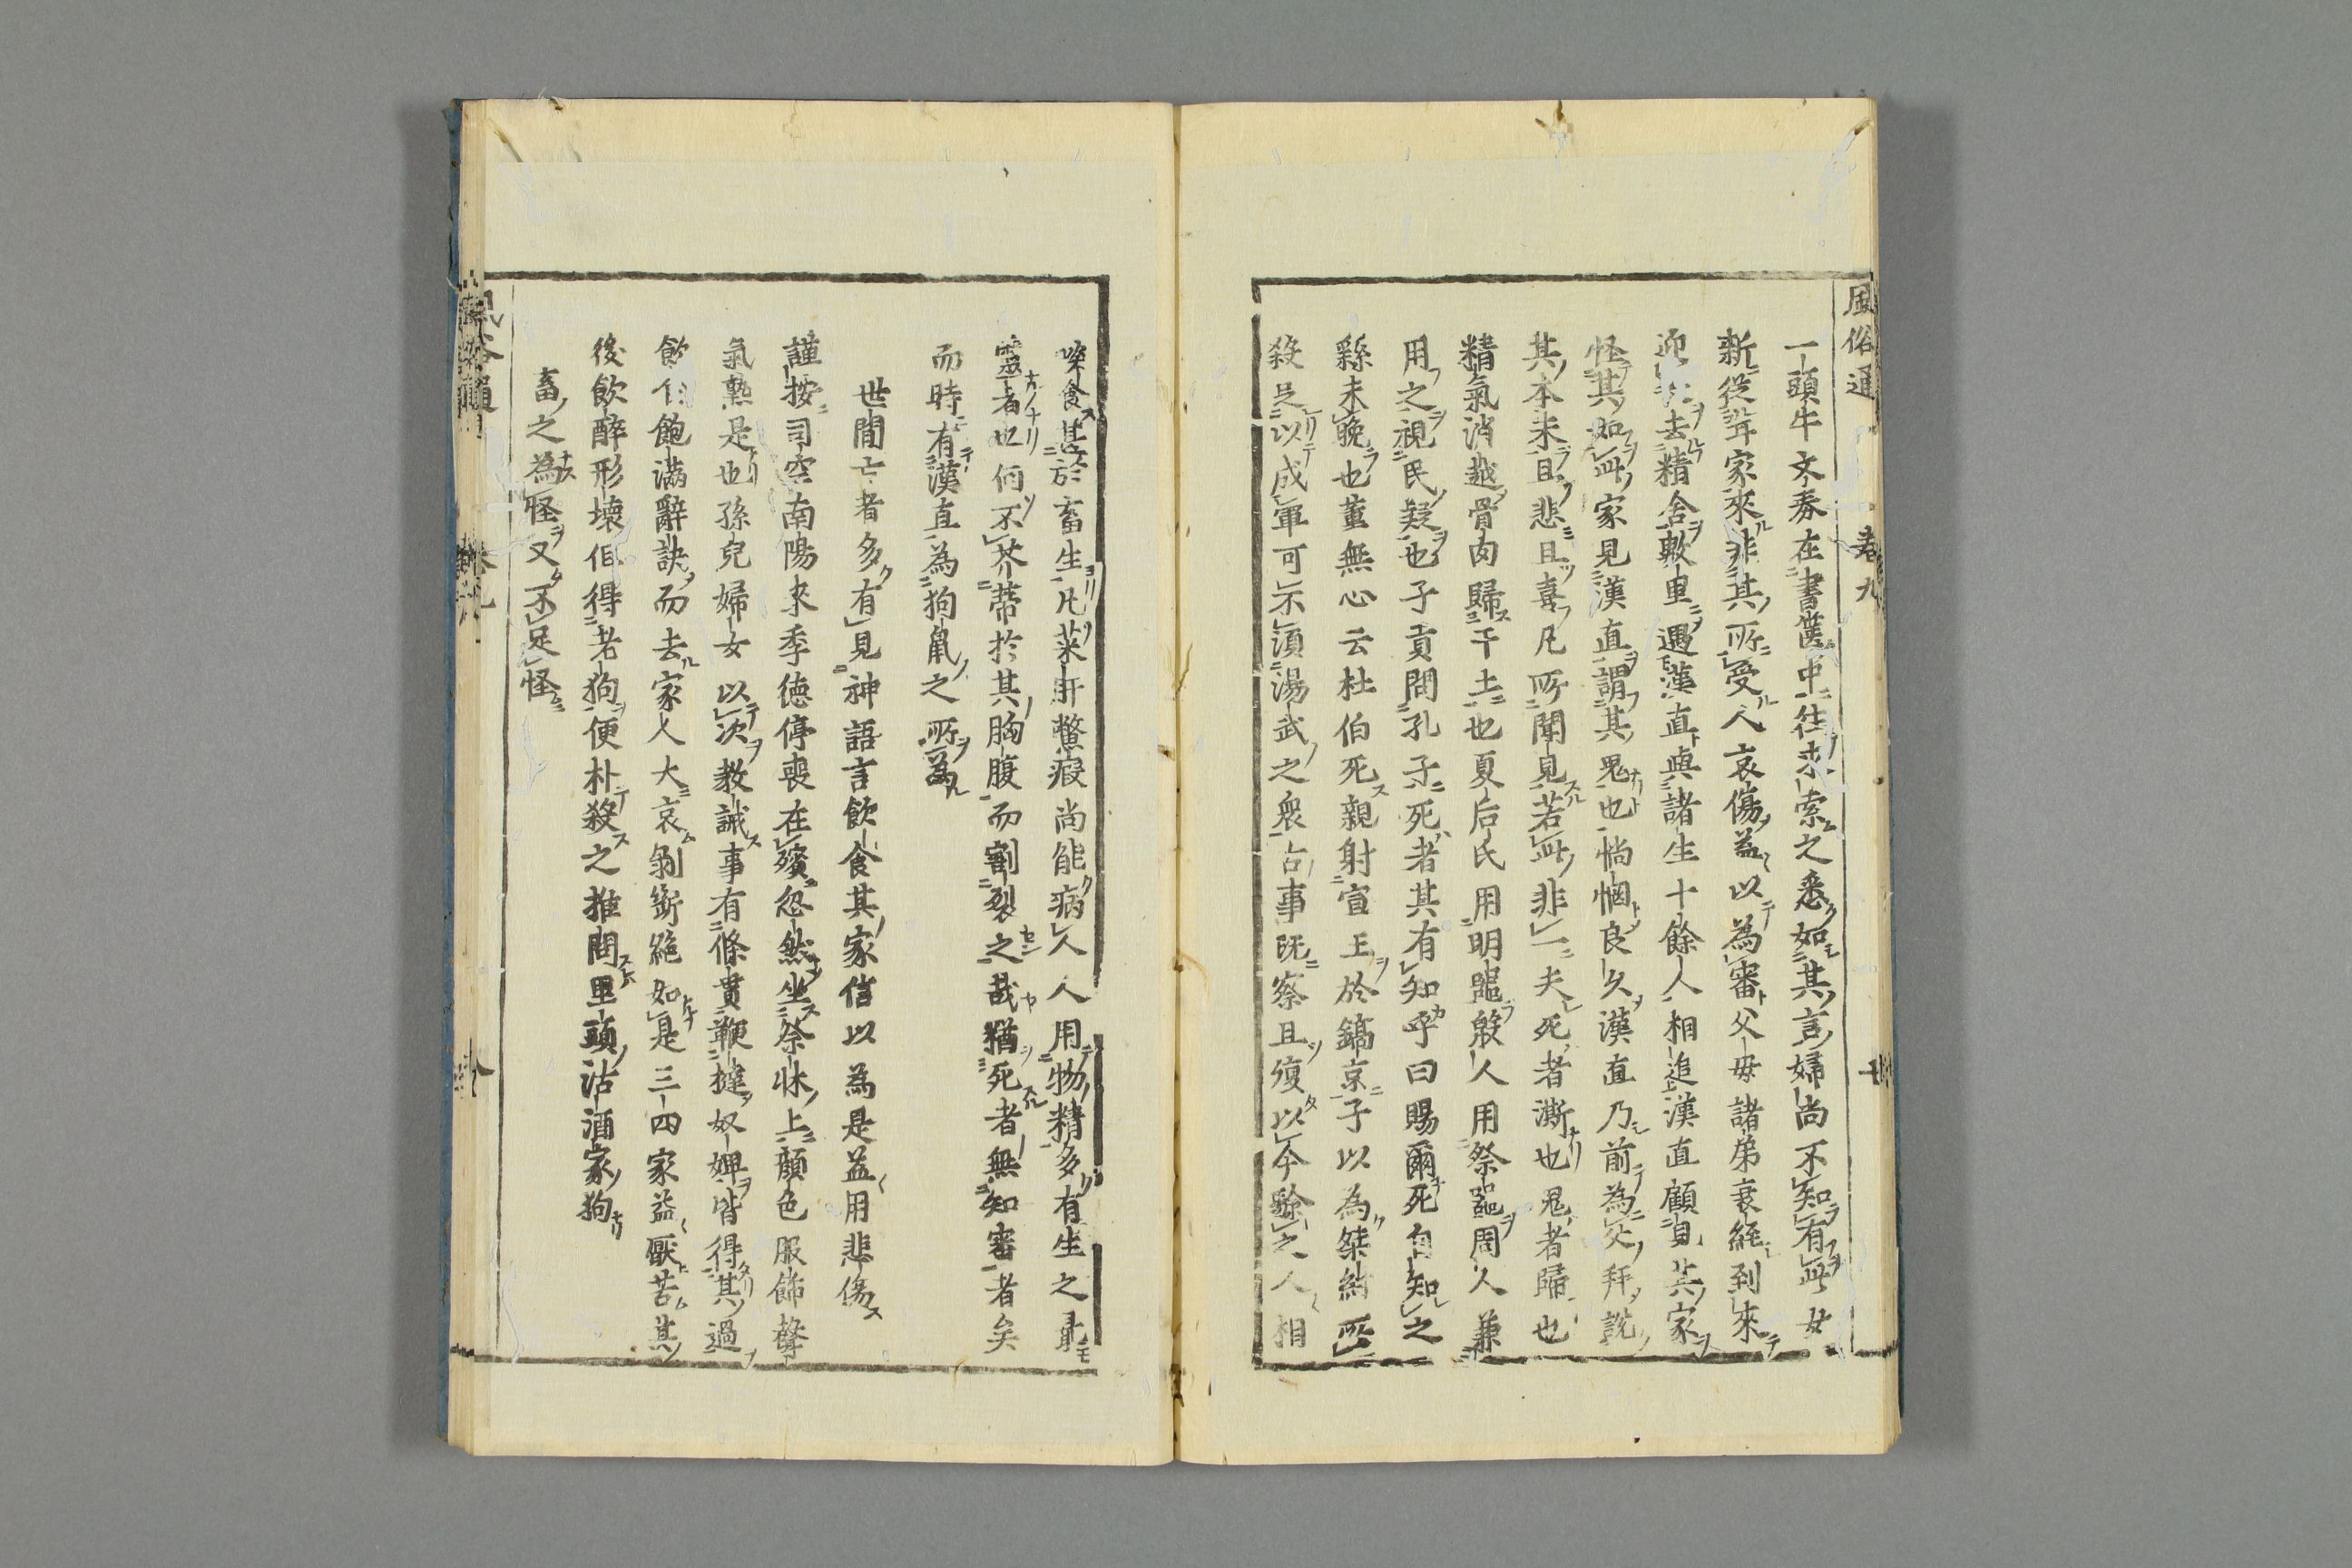 風俗通 卷九
一頭牛文券在書篋中往求索之悉如其言婦尚不知有此女
新從聟家來非其所受人哀傷益以為審父母諸弟衰絰到來
迎去精舍數里遇漢直與諸生十餘人相追漢直顧見其家
怪其如此家見漢直謂其鬼也惝惘良久漢直乃前為父拜說
其本末且悲且喜凡所聞見若此非一夫死者澌也鬼者歸也
精氣消越骨肉歸于土也夏后氏用明噐殷人用祭噐周人兼
用之視民疑也子貢問孔子死者其有知乎曰賜爾死自知之
繇未晚也董無心云杜伯死親射宣王於鎬京子以為桀紂所
殺足以成軍可不須湯武之衆古事既察且復以今驗之人相
啖食甚於畜生凡菜肝鱉瘕尚能病人人用物精多有生之最
靈者也何不芥蒂於其胸腹而割裂之哉猶死者無知審者矣
而時有漢直為狗鼠之所為
世間亡者多有見神語言飲食其家信以為是益用悲傷
謹按司空南陽来季德停喪在殯忽然坐祭牀上顏色服飾聲
氣熟是也孫兒婦女以次教誡事有條貫鞭撻奴婢皆得其過
飲食飽滿辭訣而去家人大哀剝斷絶如是三四家益厭苦其
後飲醉形壊但得老狗便朴殺之推問里頭沽酒家狗
畜之為怪又不足怪